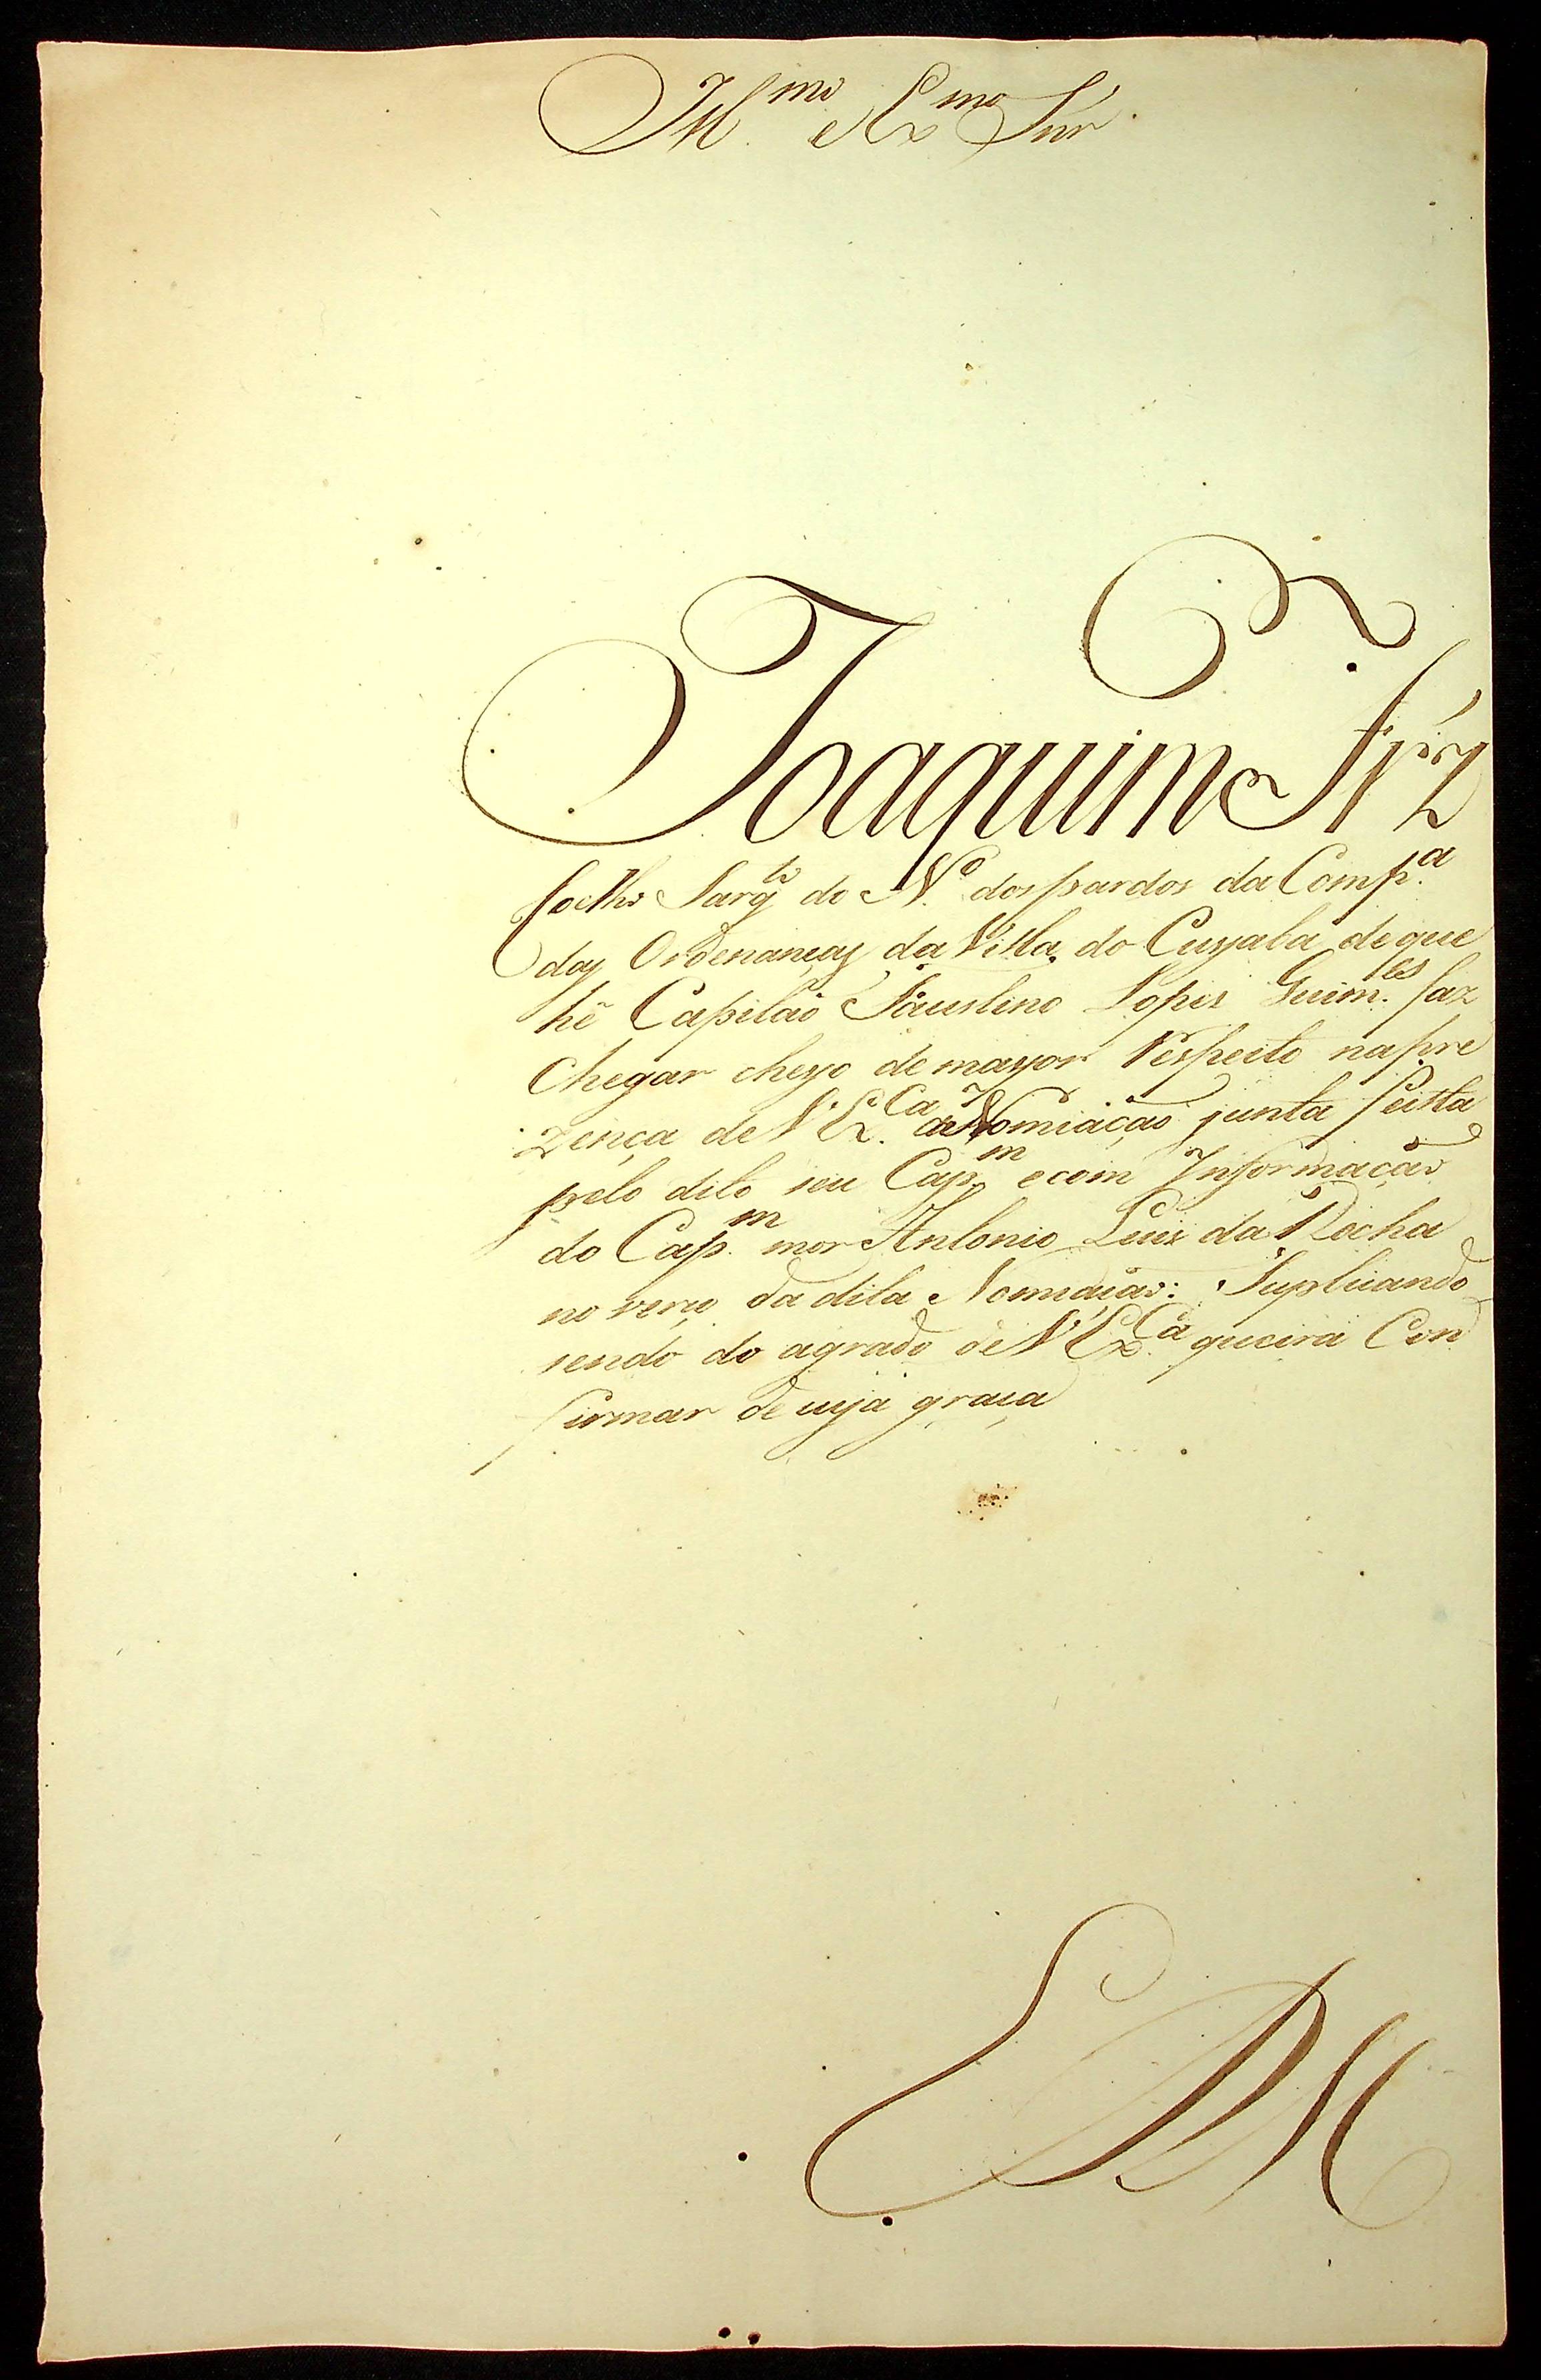 Ill.mo e Ex.mo Snr
Joaquim Frz
Coelho Sarg.to do N.º dos pardos da Comp.a
das Ordenanças da Villa do Cuyaba de que
hé Capitão Faustino Lopes Guim.es faz
chegar cheyo de mayor Respeito na pre
zença de V Ex.Ca a Nomiação junta feitta
pelo dito seu Cap.m e com Informação
do Cap.m mor Antonio Luis da Rocha
no verço da dita Nomiação: Suplicando
sendo do agrado de V Ex.Ca queira Con
firmar de cuja graça
E R M